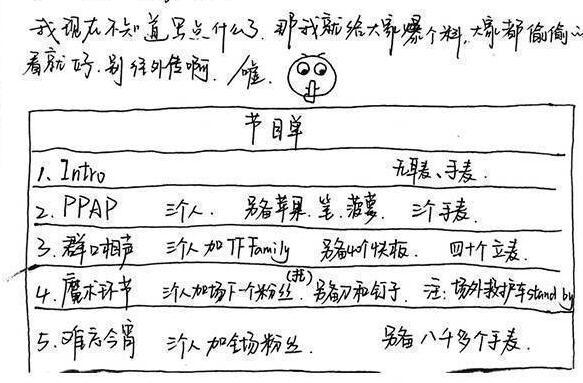 我现在不知道写点什么了，那我就给大家爆个料，大家都偷偷
看就好，别往外传啊，嘘
节目单
1. Intro 无耳麦、手麦.
2. PPAP 三个人. 另备苹果. 笔. 菠萝. 三个手麦.
3. 群口相声 三个人加TF Family 另备40个快板. 四十个立麦.
4. 魔术环节 三个人加场下一个粉丝(托). 另备刀和钉子. 注: 场外救护车stand by
5. 难忘今宵 三个人加全场粉丝. 另备八千多个手麦.